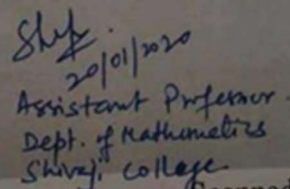 20/01/2020
Assistant Professor.
Dept. of Mathematics
Shivaji College